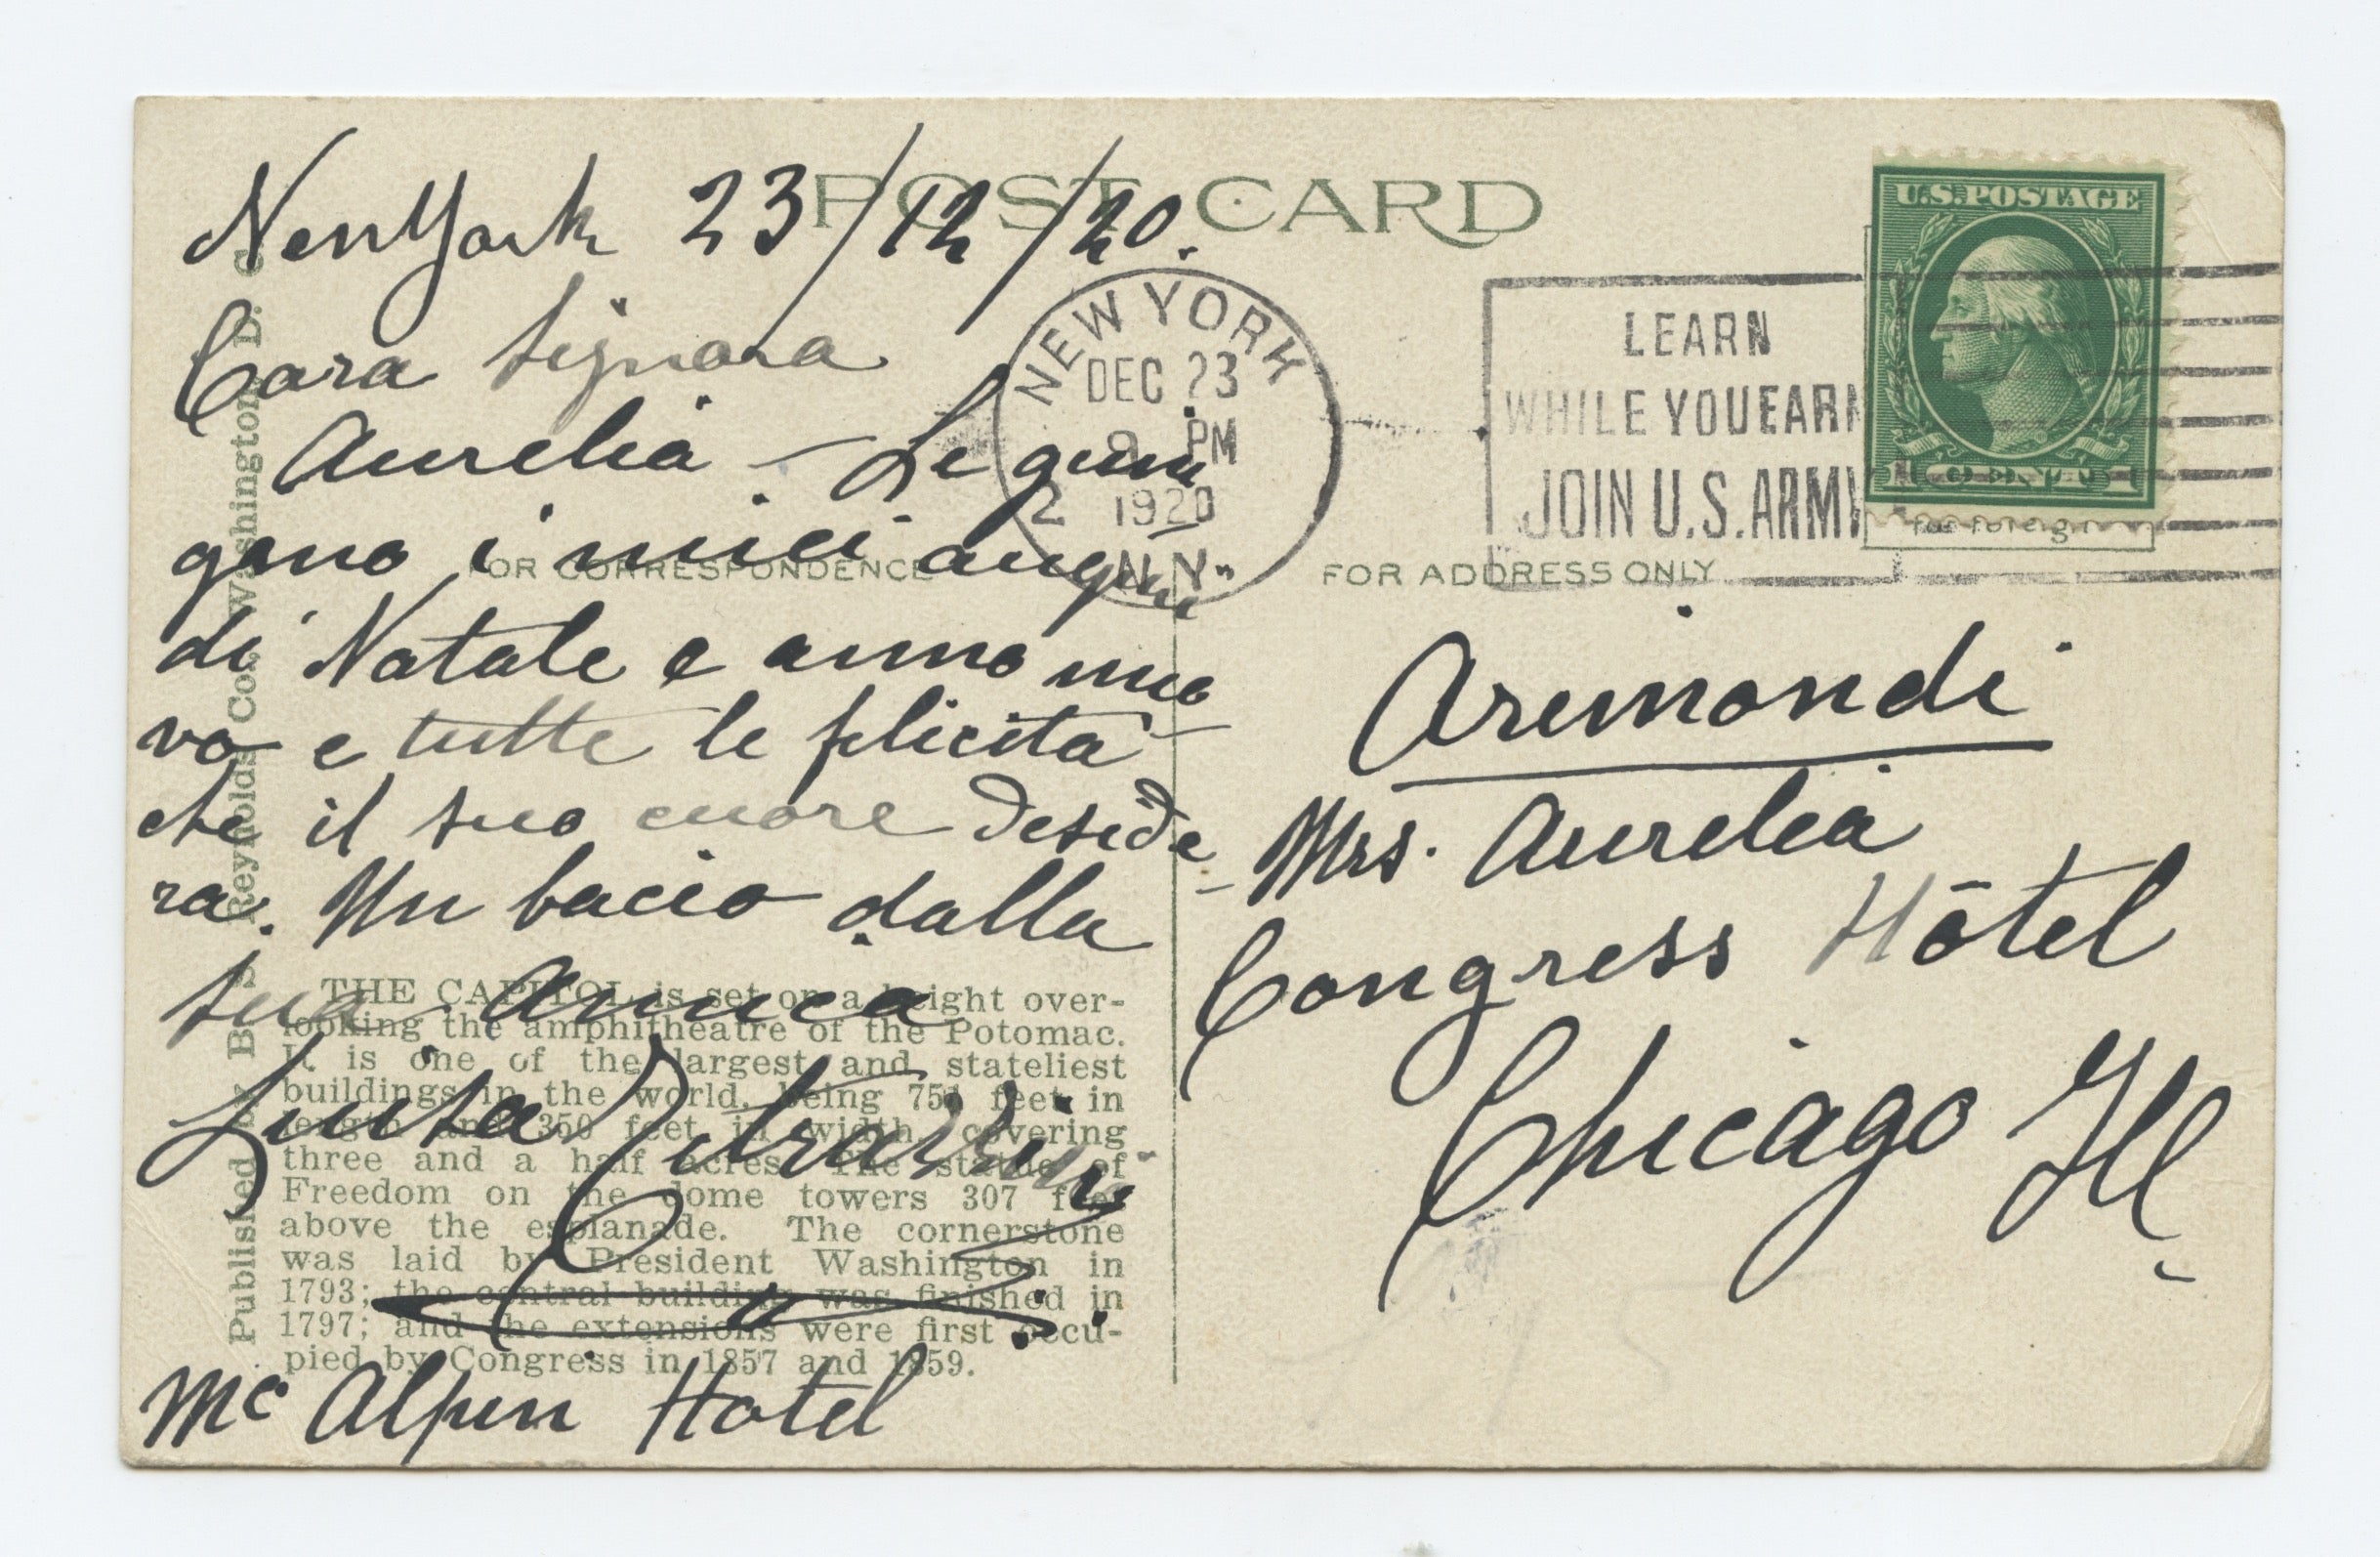 POST CARD
New York 23/12/20.
Cara Signora
Aurelia - Le giun
gano i miei auguri
di Natale e anno nuo
vo e tutte le felicità
che il suo cuore deside
ra. Un bacio dalla
sua amica
Luisa
Mc Alpin Hotel
NEW YORK
DEC 23
PM
1920
N.Y.
LEARN
WHILE YOU EARN
JOIN U.S. ARMY
U.S. POSTAGE
for foreign
FOR CORRESPONDENCE
FOR ADDRESS ONLY
Arimondi
Mrs. Aurelia
Congress Hotel
Chicago Ill
THE CAPITOL is set on a height over-
looking the amphitheatre of the Potomac.
It is one of the largest and stateliest
buildings in the world, being 751 feet in
length and 350 feet in width, covering
three and a half acres. The statue of
Freedom on the dome towers 307 feet
above the esplanade. The cornerstone
was laid by President Washington in
1793; the central building was finished in
1797; and the extensions were first occu-
pied by Congress in 1857 and 1859.
Published by B. S. Reynolds Co., Washington, D. C.